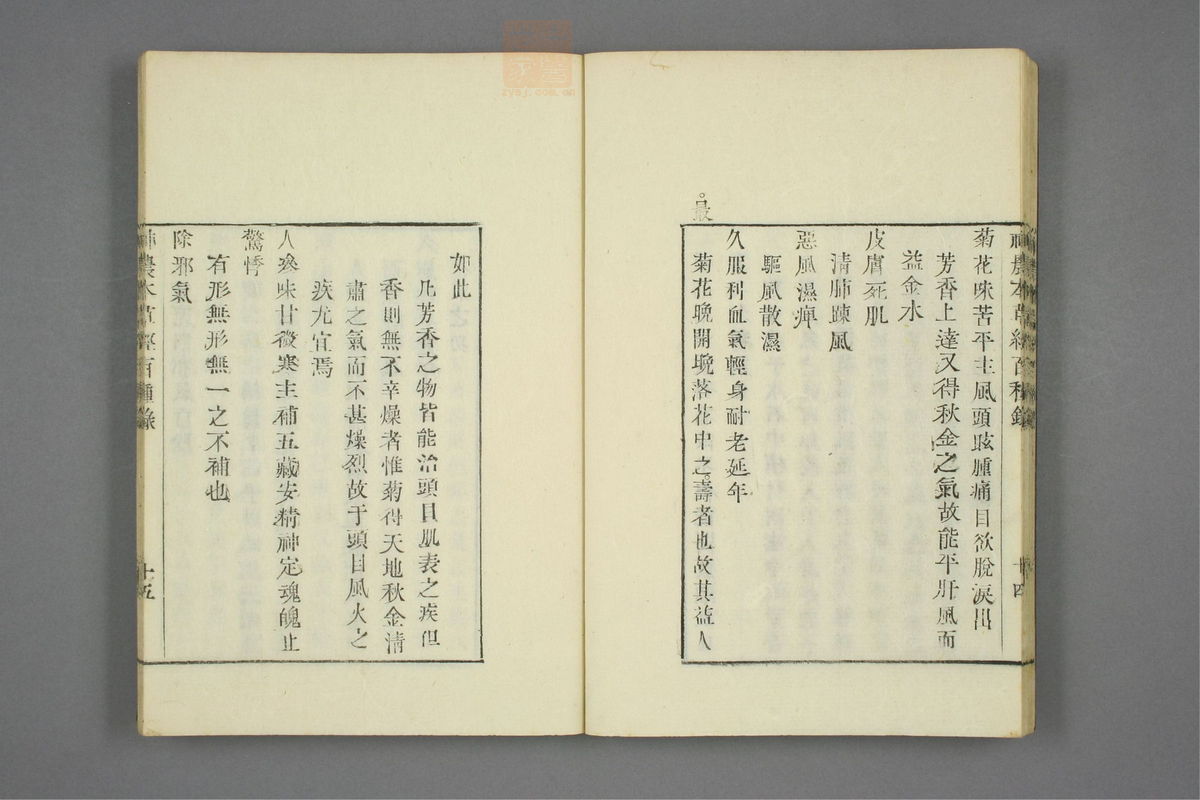 神農本草經百種錄
十四
菊花味苦平主風頭眩腫痛目欲脫淚出
芳香上達又得秋金之氣故能平肝風而
益金水
皮膚死肌
清肺踈風
惡風濕痺
驅風散濕
久服利血氣輕身耐老延年
菊花晚開晚落花中之壽者也故其益人
最
如此
凡芳香之物皆能治頭目肌表之疾但
香則無不辛燥者惟菊得天地秋金清
肅之氣而不甚燥烈故于頭目風火之
疾尤宜焉
人參味甘微寒主補五藏安精神定魂魄止
驚悸
有形無形無一之不補也
除邪氣
神農本草經百種錄
十五
zysj.com.cn